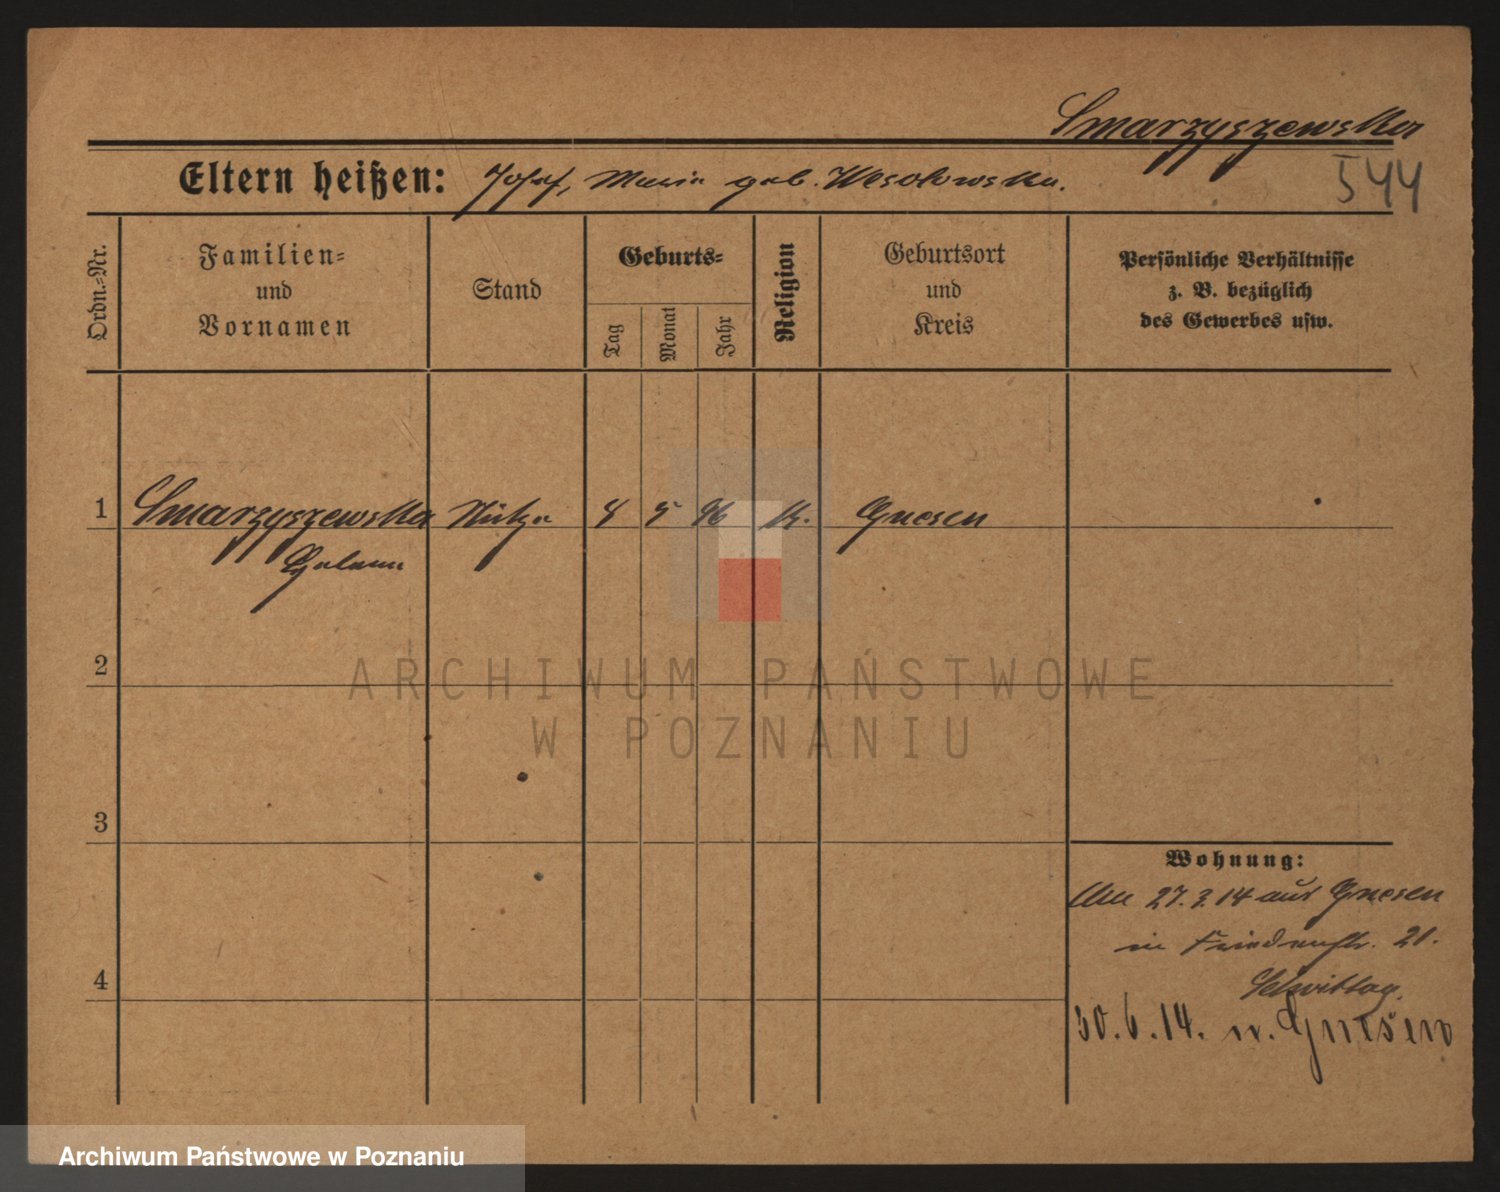 Smarzyszewska
Eltern heißen: Josef, Maria geb. Wesolowska.
544
Ordn.-Nr.
Familien-
und
Vornamen
Stand
Geburts-
Tag
Monat
Jahr
Religion
Geburtsort
und
Kreis
Persönliche Verhältnisse
z. B. bezüglich
des Gewerbes usw.
1 Smarzyszewska 8 5 96 K. Gnesen
2
ARCHIWUM PAŃSTWOWE
W POZNANIU
3
Wohnung:
27.3.14 aus Gnesen
in Friedenstr. 21.
4
30.6.14. n. Gnesen
Archiwum Państwowe w Poznaniu